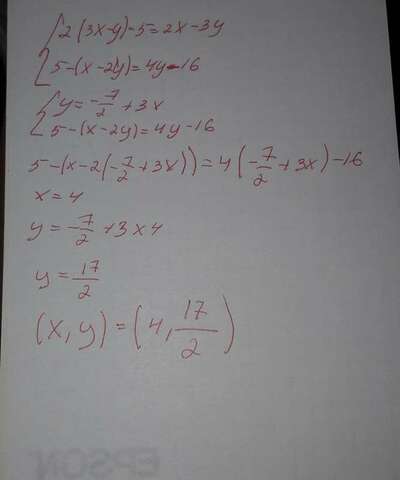 2(3x-y)-5=2x-3y
5-(x-2y)=4y-16
y=-7/2+3x
5-(x-2y)=4y-16
5-(x-2(-7/2+3x))=4(-7/2+3x)-16
x=4
y=-7/2+3x4
y=17/2
(x,y)=(4,17/2)
EPSON